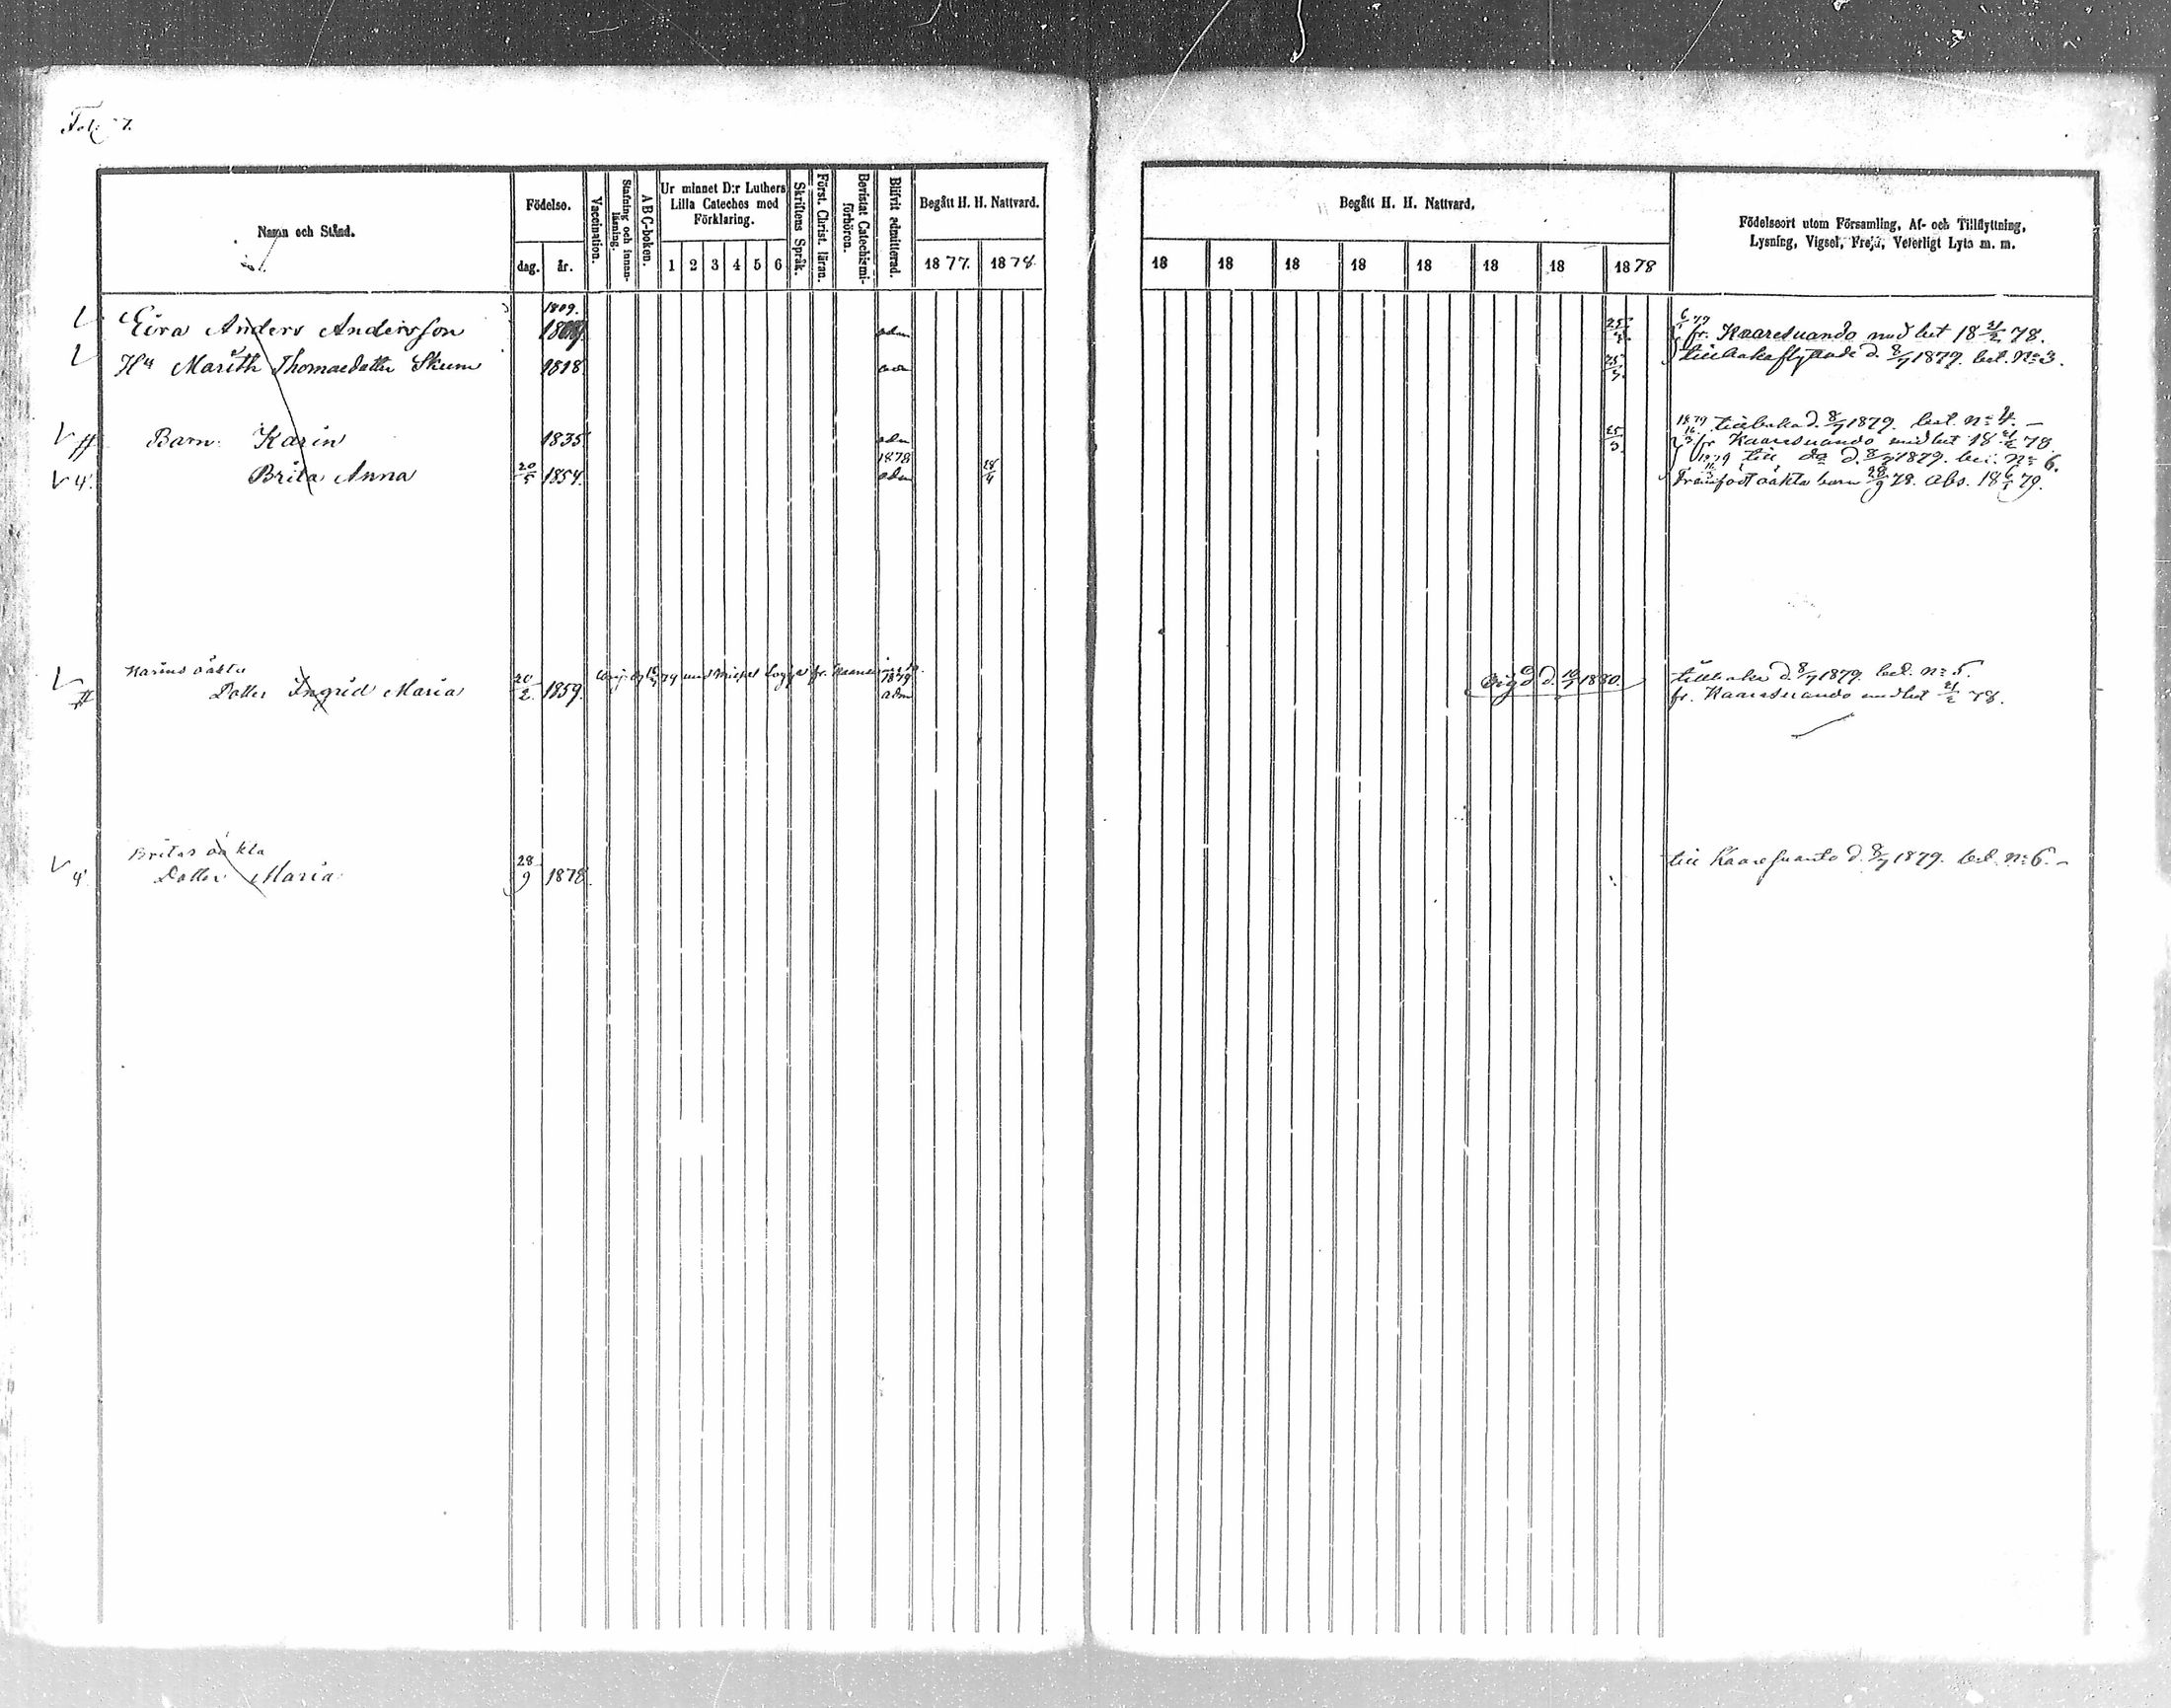 Fol. 7.
Namn och Stånd.
Födelse.
dag.
år.
Vaccination.
Stafning och innan-
läsning.
ABC-boken.
Ur minnet D:r Luthers
Lilla Cateches med
Förklaring.
1 2 3 4 5 6
Skriftens Språk.
Först. Christ. läran.
Bevistat Catechismi-
förhören.
Blifvit admitterad.
Begått H. H. Nattvard.
1877. 1878.
Begått H. H. Nattvard.
18 18 18 18 18 18 18 1878
Födelseort utom Församling, Af- och Tillflyttning,
Lysning, Vigsel, Frejd, Veterligt Lyte m. m.
1809.
Eira Anders Andersson adm 25/ fr. Karesuando med bet 18 21/2 78.
Hu Marith Thomaedotter Skum 1818 25/ tillbakaflyttade d. 8/7 1879. bet. No 3.
1879 tillbaka d. 8/7 1879. bet. No 4. –
Barn: Karin 1835 adm 25/3 fr Kaaresuando med bet 18 21/2 78.
1878
1879 till do d. 8/7 1879. bet. No 6.
Brita Anna 20/5 1854. adm 28/4 Framfödt oäkta barn 28/9 78. Abs. 18 6/1 79.
Karins oäkta
tillbaka d. 8/7 1879. bet. No 5.
Dotter Ingrid Maria 20/2 1859. adm Vigd d. 1880. fr. Kaaresuando med bet 21/2 78.
Britas oäkta
Dotter Maria 28/9 1878. till Karesuanto d. 8/7 1879. bet. No 6. –